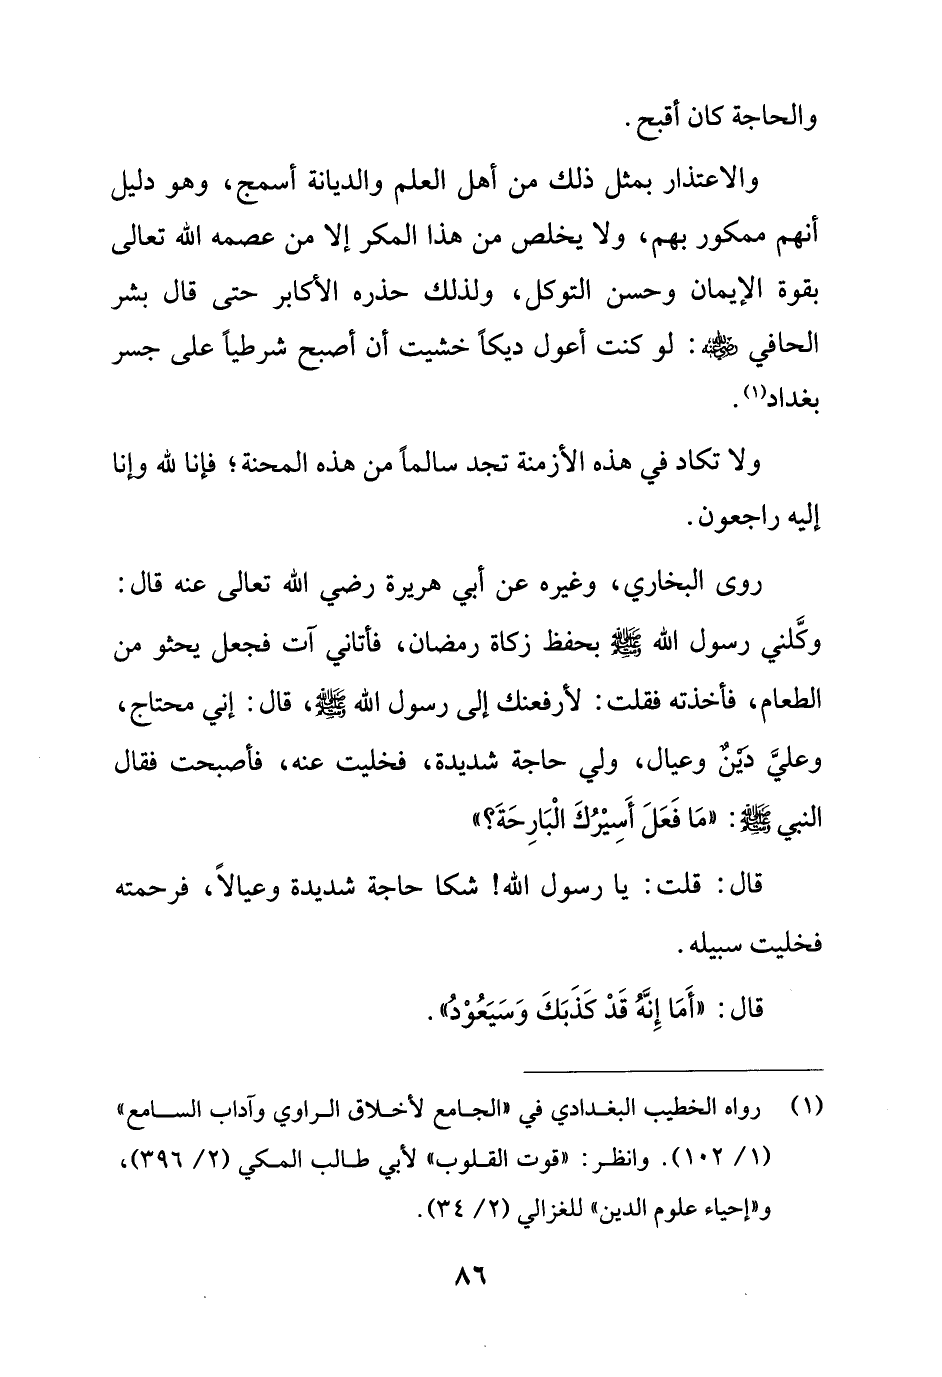 والحاجة كان أقبح .
والاعتذار بمثل ذلك من أهل العلم والديانة أسمج، وهو دليل
أنهم ممكور بهم، ولا يخلص من هذا المكر إلا من عصمه الله تعالى
بقوة الإيمان وحسن التوكل، ولذلك حذره الأكابر حتى قال بشر
الحافي رضي الله عنه: لو كنت أعول ديكاً خشيت أن أصبح شرطياً على جسر
بغداد(١) .
ولا تكاد في هذه الأزمنة تجد سالماً من هذه المحنة؛ فإنا لله وإنا
إليه راجعون.
روى البخاري، وغيره عن أبي هريرة رضي الله تعالى عنه قال:
وكَّلني رسول الله ﷺ بحفظ زكاة رمضان، فأتاني آت فجعل يحثو من
الطعام، فأخذته فقلت: لأرفعنك إلى رسول الله ﷺ، قال: إني محتاج،
وعليَّ دَيْنٌ وعيال، ولي حاجة شديدة، فخليت عنه، فأصبحت فقال
النبي ﷺ: «مَا فَعَلَ أَسِيْرُكَ الْبَارِحَةَ؟»
قال: قلت: يا رسول الله! شكا حاجة شديدة وعيالاً، فرحمته
فخليت سبيله .
قال: «أَمَا إِنَّهُ قَدْ كَذَبَكَ وَسَيَعُوْدُ» .
(١) رواه الخطيب البغدادي في «الجامع لأخلاق الراوي وآداب السامع»
(١/ ١٠٢). وانظر: «قوت القلوب» لأبي طالب المكي (٢/ ٣٩٦)،
و«إحياء علوم الدين» للغزالي (٢/ ٣٤).
٨٦